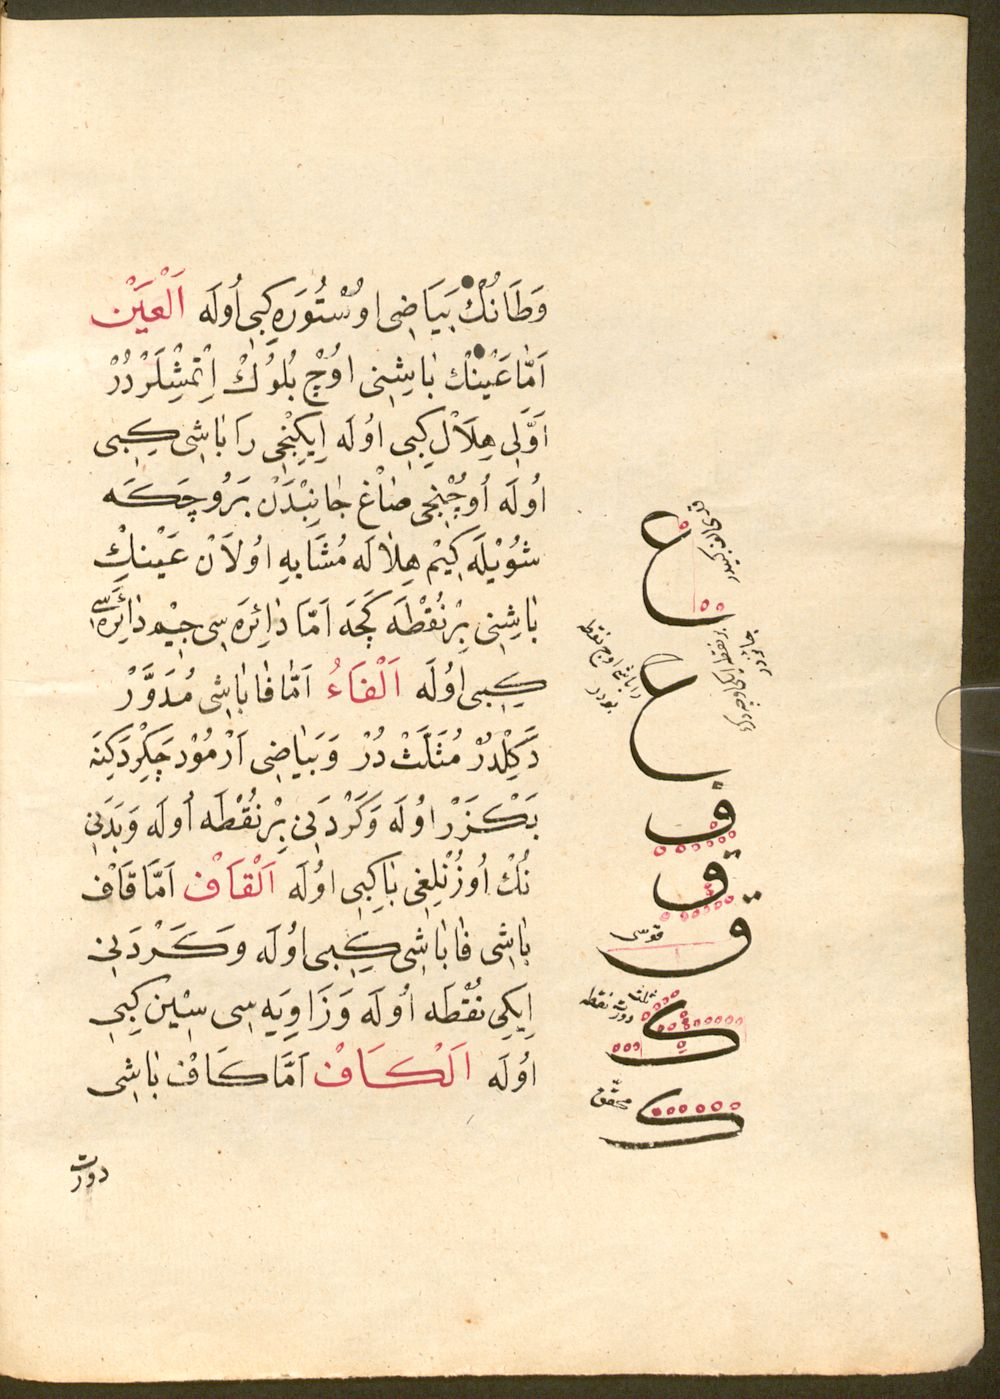 وَطَانُكْ بَيَاضِى اوُسْتُورَه كِبِى اُولَه اَلْعَيْن
اَمَّا عَيْنُكْ بَاشِنِى اوُچْ بُلُوكْ اِتْمِشْلَرْدُرْ
اَوَّلِى هِلَالْ كِبِى اوُلَه اِيكِنْجِى رَا بَاشِى كِبِى
اُولَه اُوچُنْجِى صَاغْ جَانِبِنْدَنْ بَرُو چَكَه
شُويْلَه كِيمْ هِلَالَه مُشَابِه اوُلَانْ عَيْنِكْ
بَاشِنِى بِرْ نُقْطَه كَچَه اَمَّا دَائِرَه سِى جِيمْ دَائِرَه سِى
كِبِى اوُلَه اَلْفَاءُ اَمَّا فَا بَاشِى مُدَوَّرْ
دَكِلْدُرْ مُثَلَّثْ دُرْ وَبَيَاضِى اَرْمُودْ چَكِرْدَكِنَه
بَكْزَرْ اوُلَه وَكَرْدَنِى بِرْ نُقْطَه اُولَه وَبَدَنِى
نُكْ اُوزُنْلِغِى بَا كِبِى اوُلَه اَلْقَافْ اَمَّا قَافْ
بَاشِى فَا بَاشِى كِبِى اوُلَه وَكَرْدَنِى
اِيكِى نُقْطَه اُولَه وَزَاوِيَه سِى سِينْ كِبِى
اوُلَه اَلْكَافْ اَمَّا كَافْ بَاشِى
دورت
ع
ع
ف
ق
ق
قوسى
ثلث
دورت نقطه
ك
محقق
ك